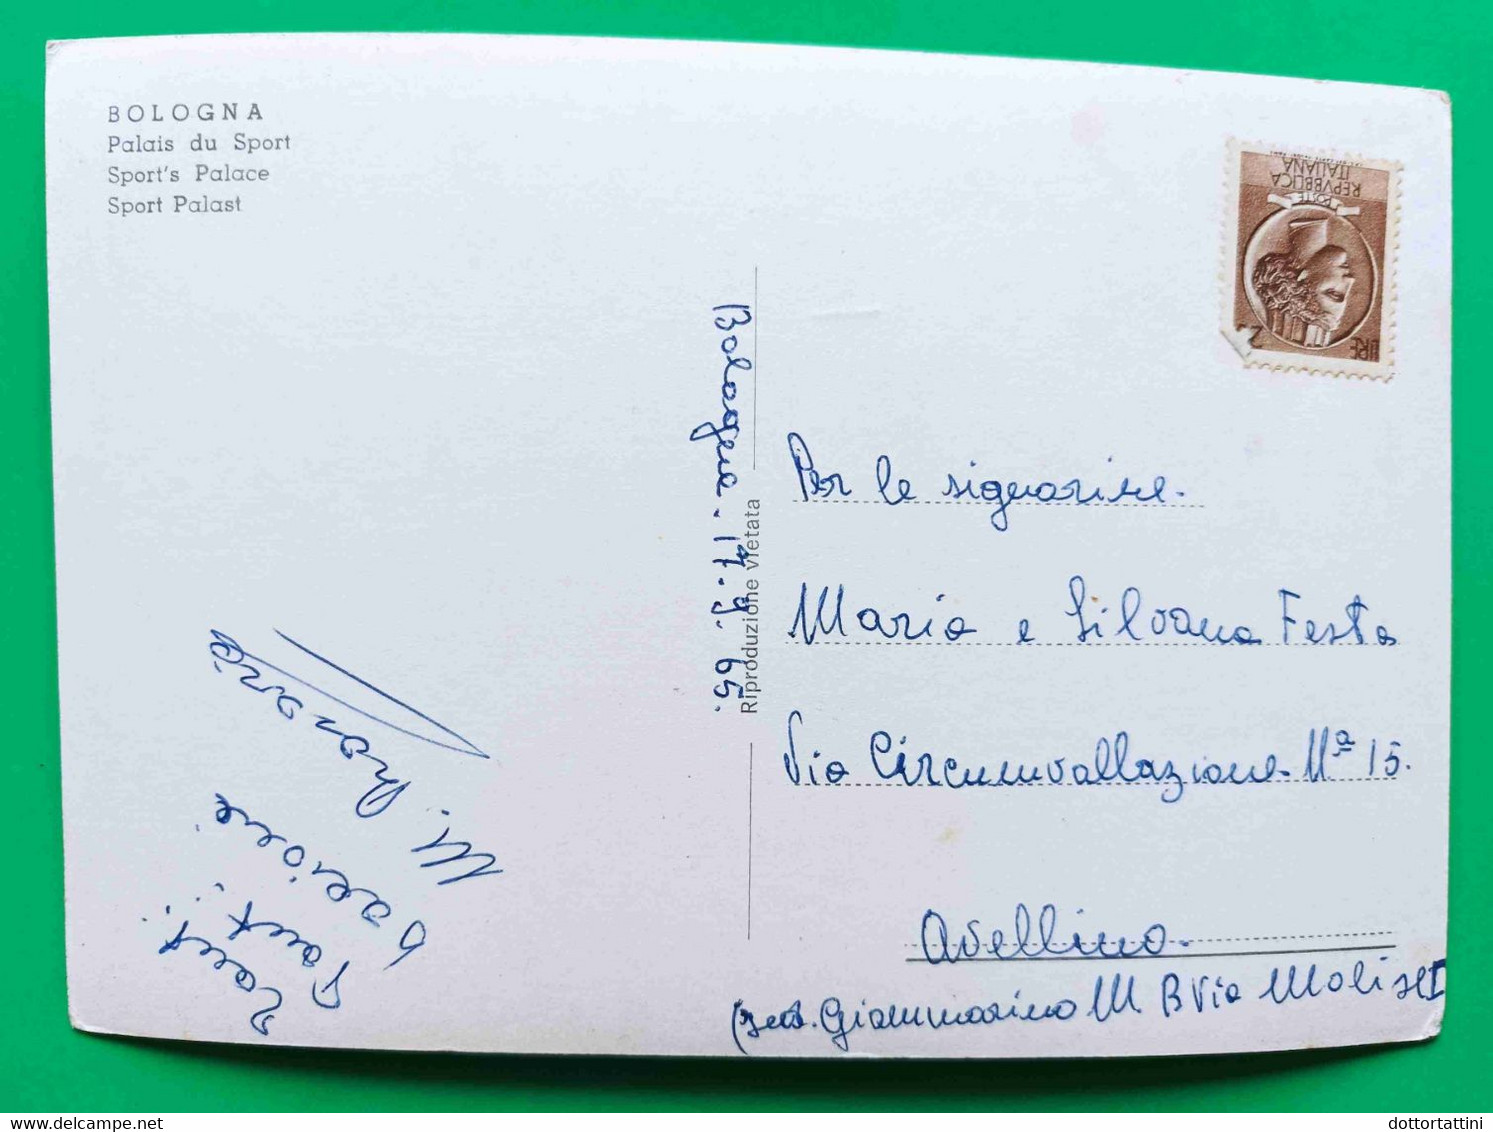 BOLOGNA
Palais du Sport
Sport's Palace
Sport Palast
POSTE
REPVBBLICA
ITALIANA
LIRE
Bologna. 17. 9. 65.
Riproduzione vietata
Per le signorine.
Maria e Silvana Festa
Via Circumvallazione Nª 15.
Avellino.
Giammarino M. B Via Molise
Tanti..
Tanti..
bacioni
M.
dottortattini